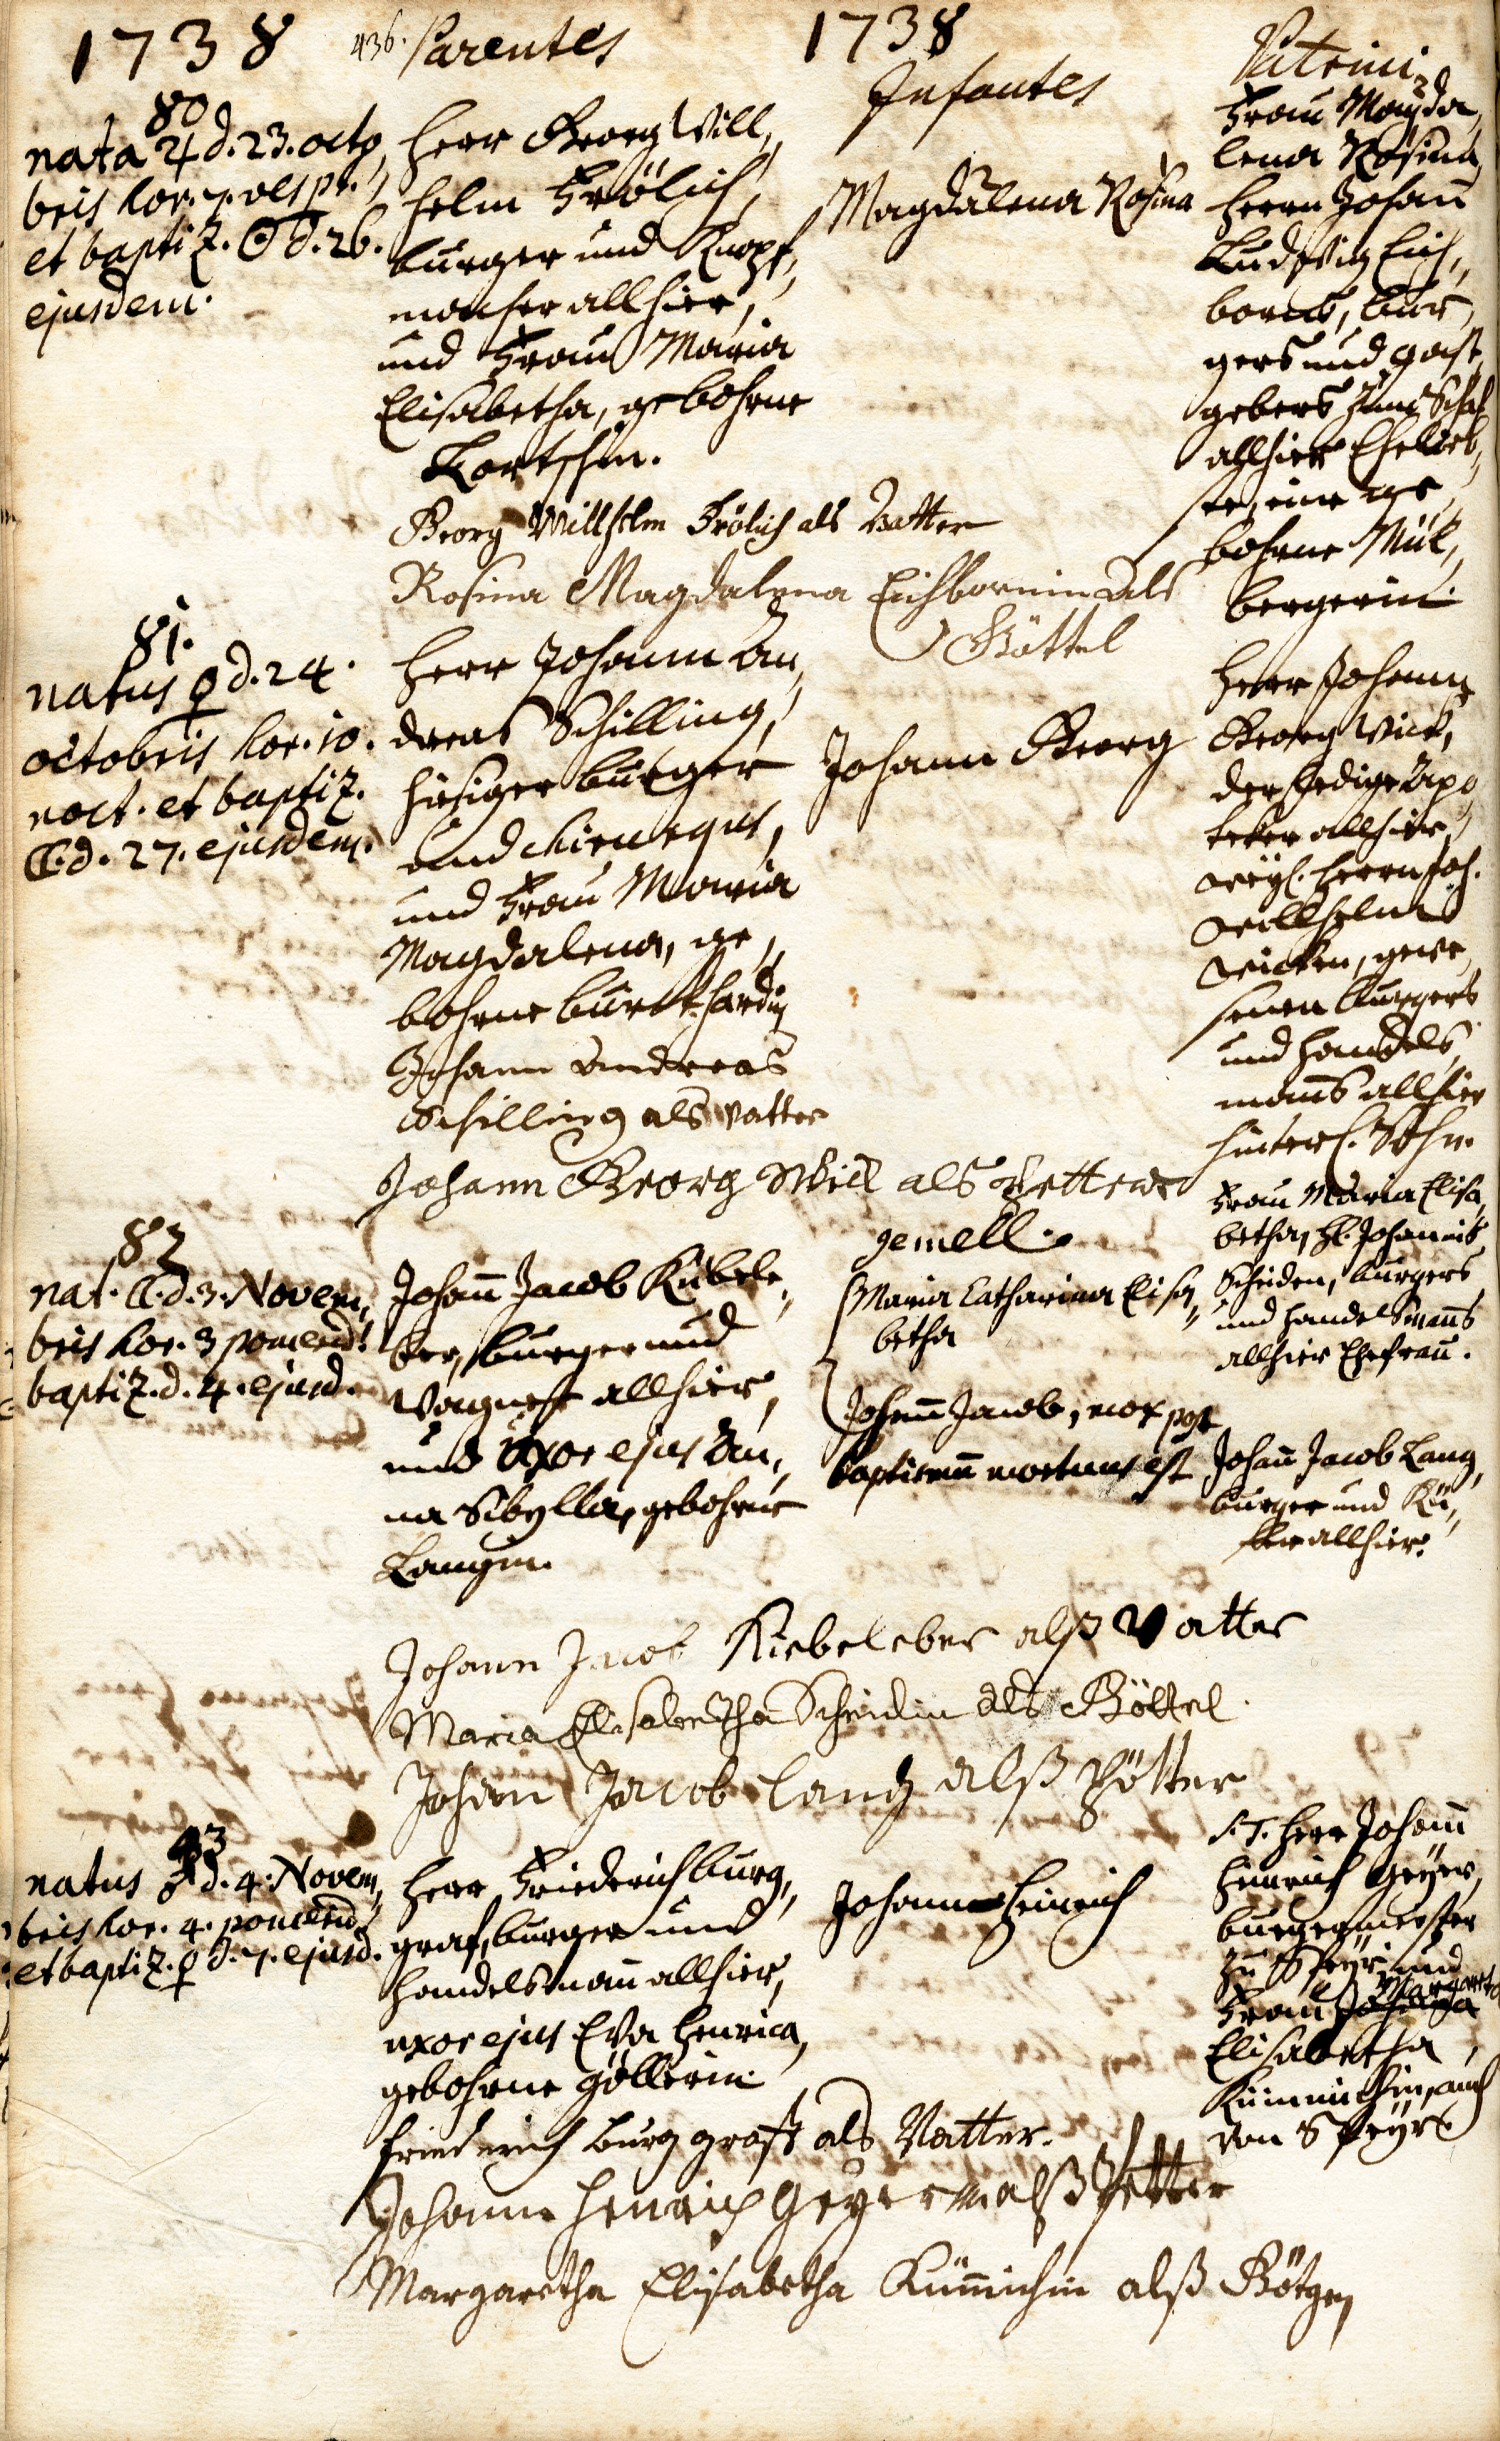 1738
436. Parentes
1738
Infantes
Patrini
80
nata ♃ d. 23. octo,
bris hor. 7. vesp.
et baptiz. ☉ d. 26.
ejusdem.
Herr Georg Will,
helm Frölich,
burger und Knopf,
macher allhier,
und Frau Maria
Elisabetha, gebohrne
Magdalena Rosina
Frau Magda,
lena Rosina
Herrn Johann
Ludwig Eich,,
borns, bur,
gers und gast,
gebers zum Schaf
allhier Eheliebste,
eine ge,
bohrne Mül,,
bergerin.
Georg Willhelm Frölich als Vatter
Rosina Magdalena Eichbornin als
Göttel
81.
natus ♀ d. 24.
octobris hor. 10.
noct. et baptiz.
☾ d. 27. ejusdem.
Herr Johann An,
dreas Schilling,
hiesiger burger
und chirurgus,
und Frau Maria
Magdalena, ge,,
bohrne burckhardin
Johann Andreas
Schilling als vatter
Johann Georg Wick als Petter
Johann Georg
Herr Johann
Georg Wick,
der ledige Apo,
teker allhier,
weyl. Herrn Joh.
Willhelm
Wicken, gewe,
senen burgers
und handels,
manns allhier
hinterl. Sohn.
82
nat. ☾ d. 3. Novem,,
bris hor. 3 pomerid.
baptiz. d. 4. ejusd.
Johann Jacob Kübele,,
ber, burger und
Wagner allhier,
und uxor ejus An,,
na Sibylla, gebohrne
Langin.
gemelli.
Maria Catharina Elisa,,
betha
Johann Jacob, mox post
baptismum mortuus est
Frau Maria Elisa,
betha, H. Johannis
Scheiden, burgers
und handelsmanns
allhier Ehefrau.
Johann Jacob Lang,
burger und Kü,,
fer allhier.
Johann Jacob Kiebeleber alß Vatter
Maria Elisabetha Scheidin als Göttel.
Johann Jacob Lang alß Pötter
83
natus ♂ d. 4. Novem,,
bris hor. 4. pomerid.
et baptiz. ♀ d. 7. ejusd.
Herr Friederich burg,,
graf, burger und
handelsmann allhier,
uxor ejus Eva Henrica,
gebohrne Göllerin.
Johann Heinrich
S. T. Herr Johann
Heinrich Geyer,
burgermeister
zu Speyr und
Margaretha
Frau Johanna
Elisabetha
Kümmichin, auch
von Speyr.
friederich burggraff als Vatter.
Johann Henrich Geyer alß Petter
Margaretha Elisabetha Kümmichin alß Götgen